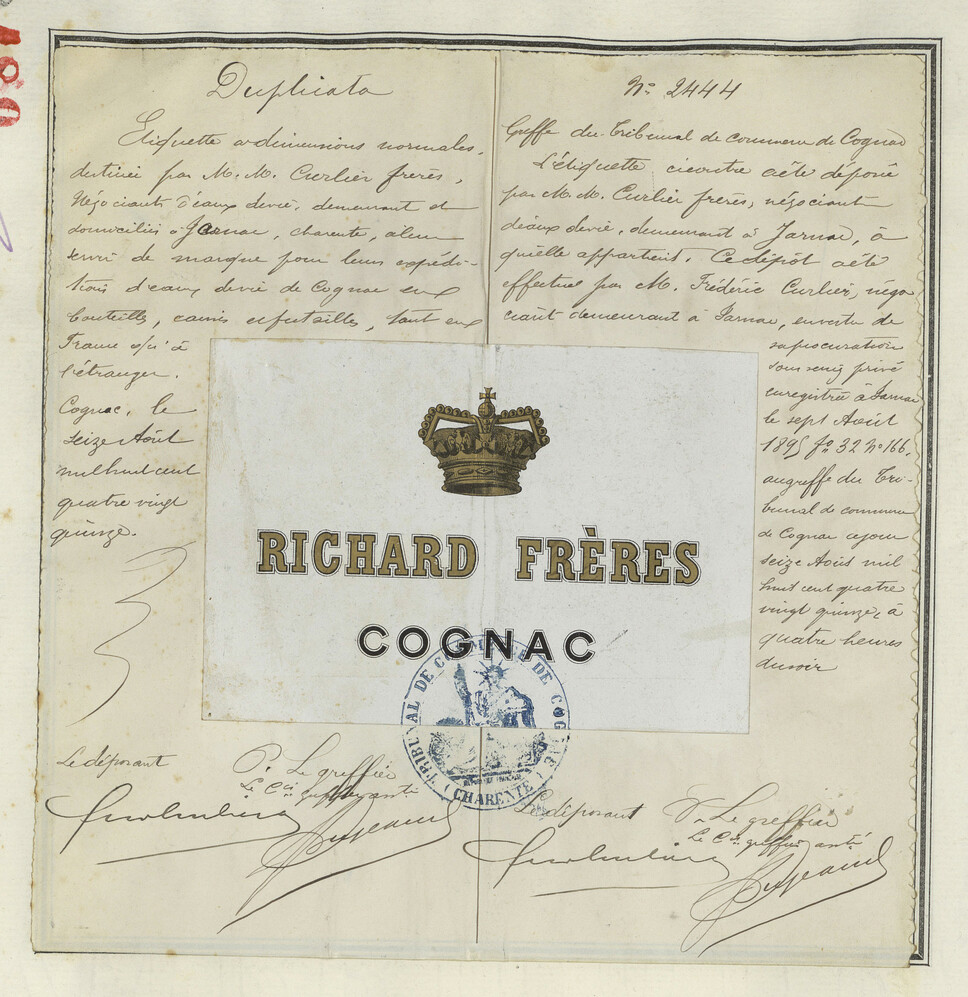 180
Duplicata
Etiquette a dimensions normales,
destinée par M. M. Curlier frères,
Négociants d'eaux devie, demeurant et
domiciliés à Jarnac, charente, à leur
servir de marque pour leurs expédi-
tions d'eaux devie de Cognac en
bouteilles, caisses et futailles, tant en
France qu'à
l'étranger.
Cognac, le
seize Août
mil huit cent
quatre vingt
quinze.
Le déposant
P. Le greffier
Le Cis greffier asté
N° 2444
Greffe du Tribunal de commerce de Cognac
L'étiquette ci contre a été déposée
par M. M. Curlier frères, négociants
d'eaux devie, demeurant à Jarnac, à
qui elle appartient. Ce dépôt a été
effectué par M. Frédéric Curlier, négo
ciant demeurant à Jarnac, en vertu de
sa procuration
sous seing privé
enregistrée à Jarnac
le sept Août
1895 fo 32 N° 166,
au greffe du Tri-
bunal de commerce
de Cognac ce jour
seize Août mil
huit cent quatre
vingt quinze, à
quatre heures
du soir
RICHARD FRÈRES
COGNAC
TRIBUNAL DE COMMERCE DE COGNAC
(CHARENTE)
Le déposant
P. Le greffier
Le Cis greffier asté